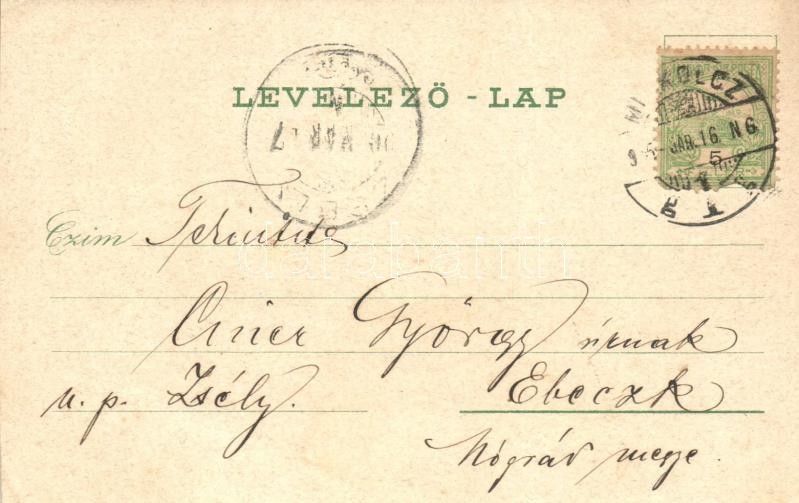 LEVELEZŐ - LAP
MISKOLCZ
JAN. 16 N6
5
MAR 17
Czim Tekintetes
György úrnak
u. p. Zsély. Ebeczk
Nógrád megye.
darabanth